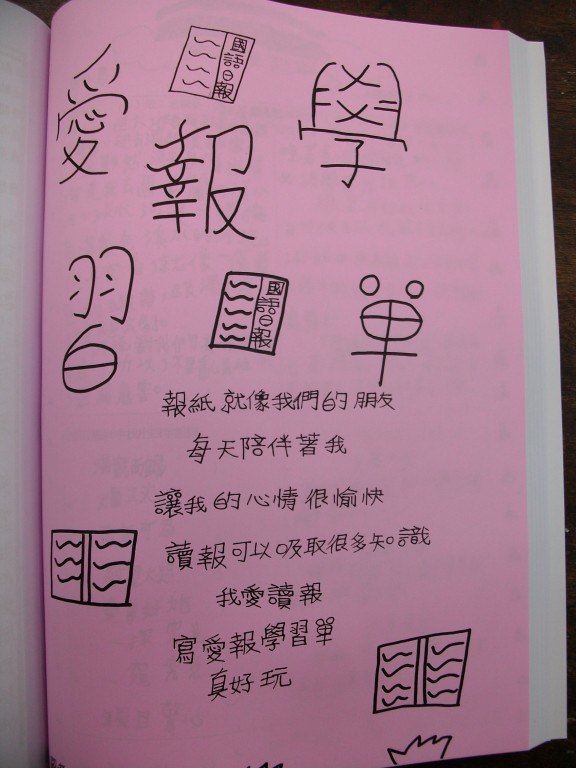 國語日報
愛報學
習單
國語日報
報紙就像我們的朋友
每天陪伴著我
讓我的心情很愉快
讀報可以吸取很多知識
我愛讀報
寫愛報學習單
真好玩